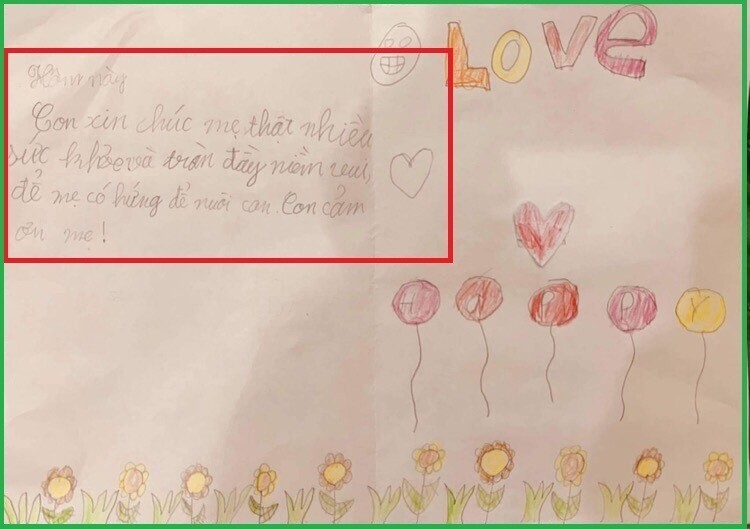 LOVE
Hôm này
Con xin chúc mẹ thật nhiều
sức khỏe và tràn đầy niềm vui
để mẹ có hứng để nuôi con. Con cảm
ơn mẹ!
HaPPY